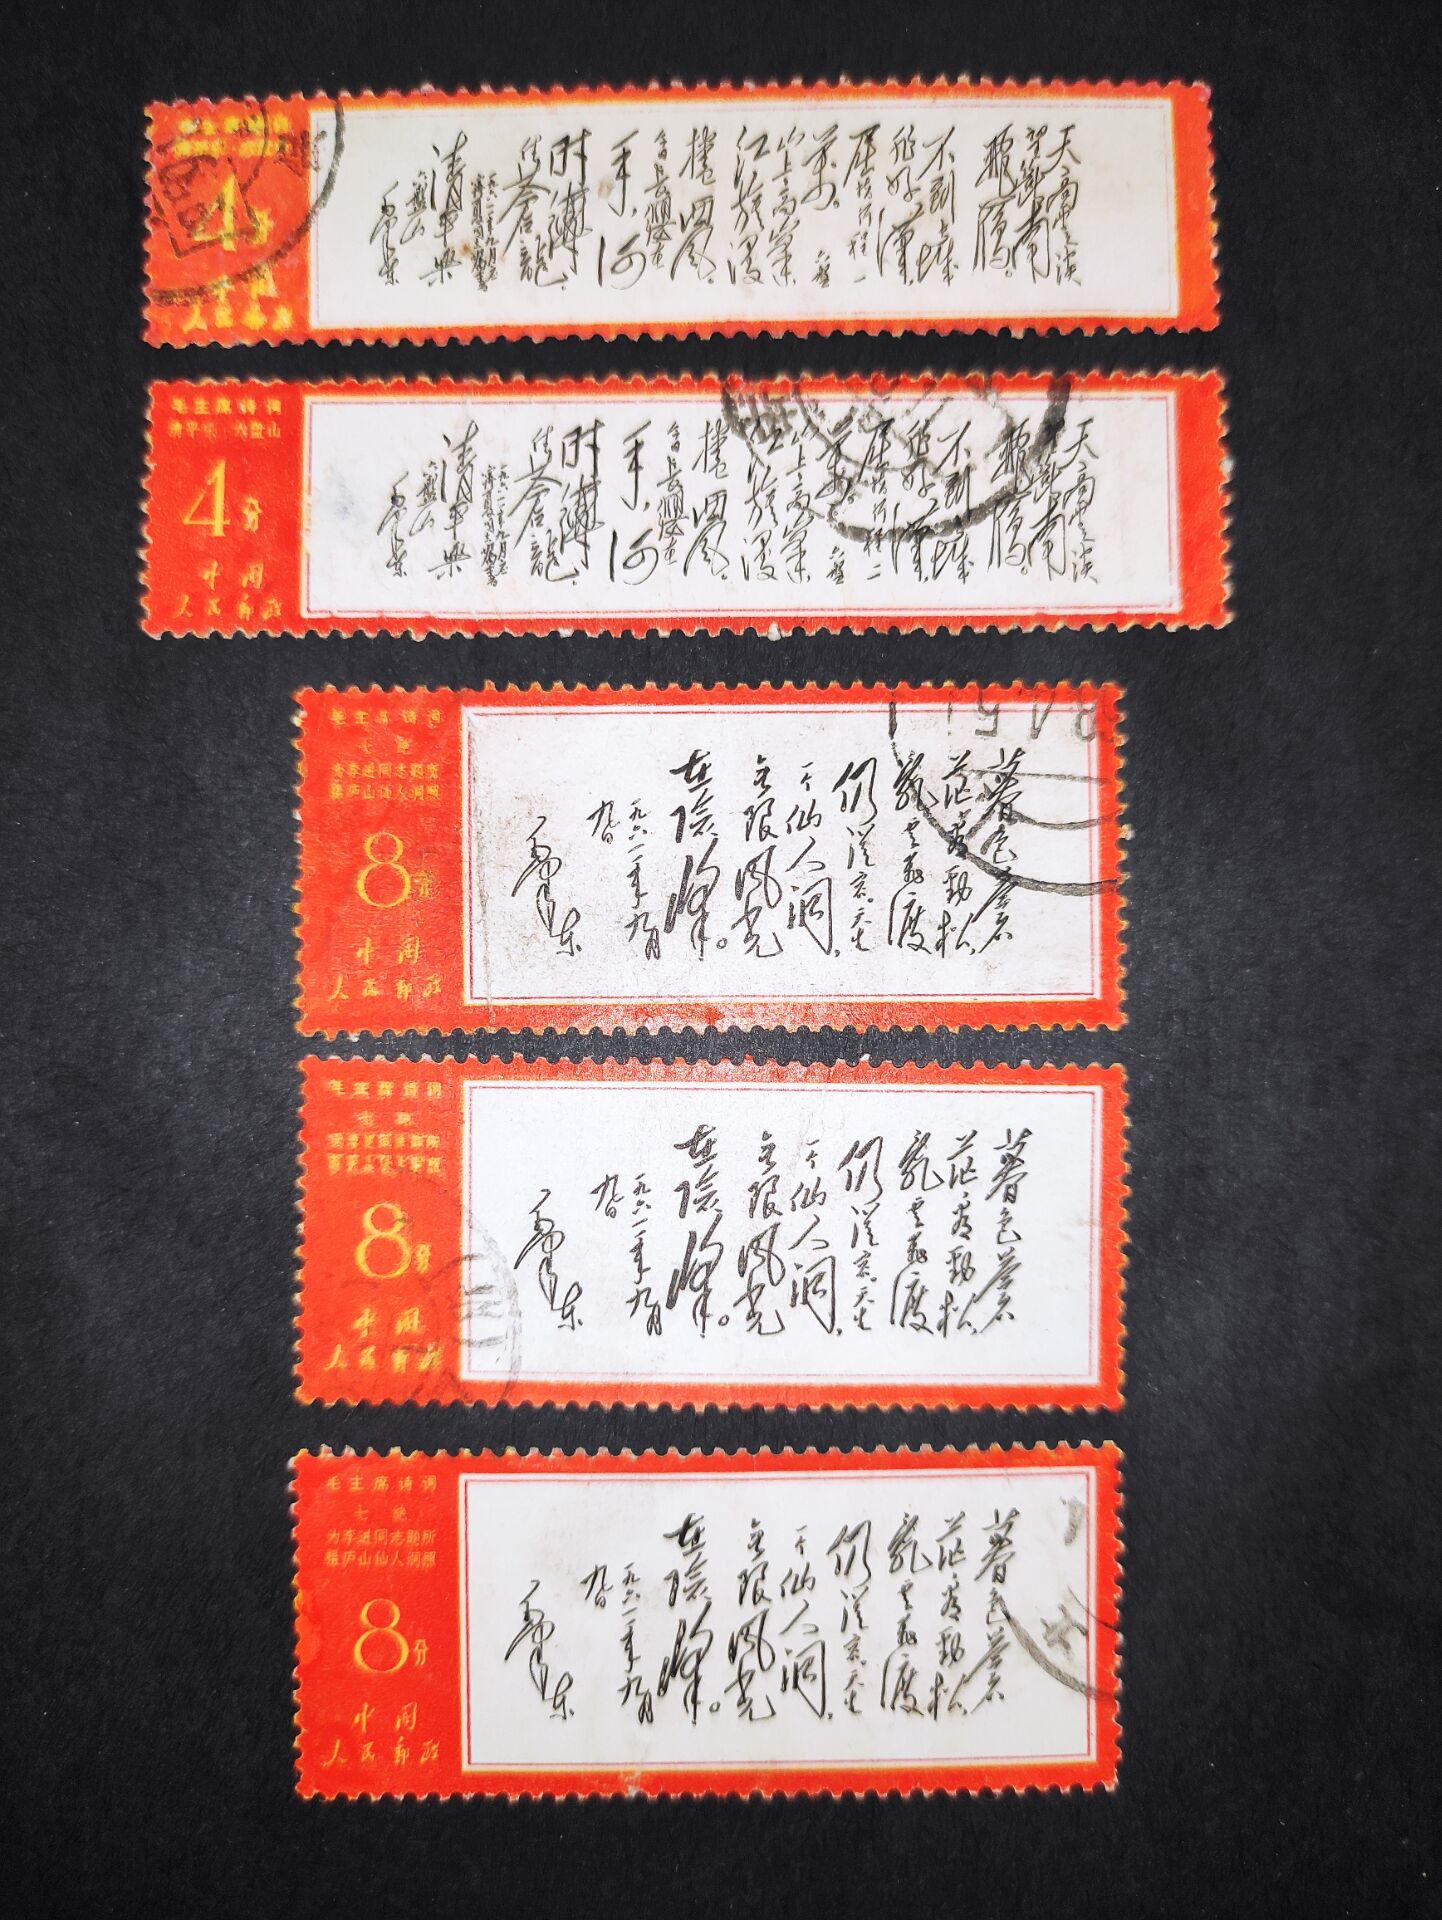 4分
中国
人民邮政
天高云淡
望断南
飞雁。
不到长城
非好汉,
屈指行程二
万。六盘
山上高峰,
红旗漫
卷西风。
今日长缨在
手,何
时缚
住苍龙。
清平乐
六盘山
毛泽东
毛主席诗词
清平乐·六盘山
4分
中国
人民邮政
天高云淡
望断南
飞雁。
不到长城
非好汉,
屈指行程二
万。六盘
山上高峰,
红旗漫
卷西风。
今日长缨在
手,何
时缚
住苍龙。
清平乐
六盘山
毛泽东
毛主席诗词
七绝
为李进同志题所
摄庐山仙人洞照
8分
中国
人民邮政
暮色苍
茫看劲松,
乱云飞渡
仍从容。天生
一个仙人洞,
无限风光
在险峰。
一九六一年九月
九日
毛泽东
毛主席诗词
七绝
8分
中国
人民邮政
暮色苍
茫看劲松,
乱云飞渡
仍从容。天生
一个仙人洞,
无限风光
在险峰。
一九六一年九月
九日
毛泽东
毛主席诗词
七绝
为李进同志题所
摄庐山仙人洞照
8分
中国
人民邮政
暮色苍
茫看劲松,
乱云飞渡
仍从容。天生
一个仙人洞,
无限风光
在险峰。
一九六一年九月
九日
毛泽东